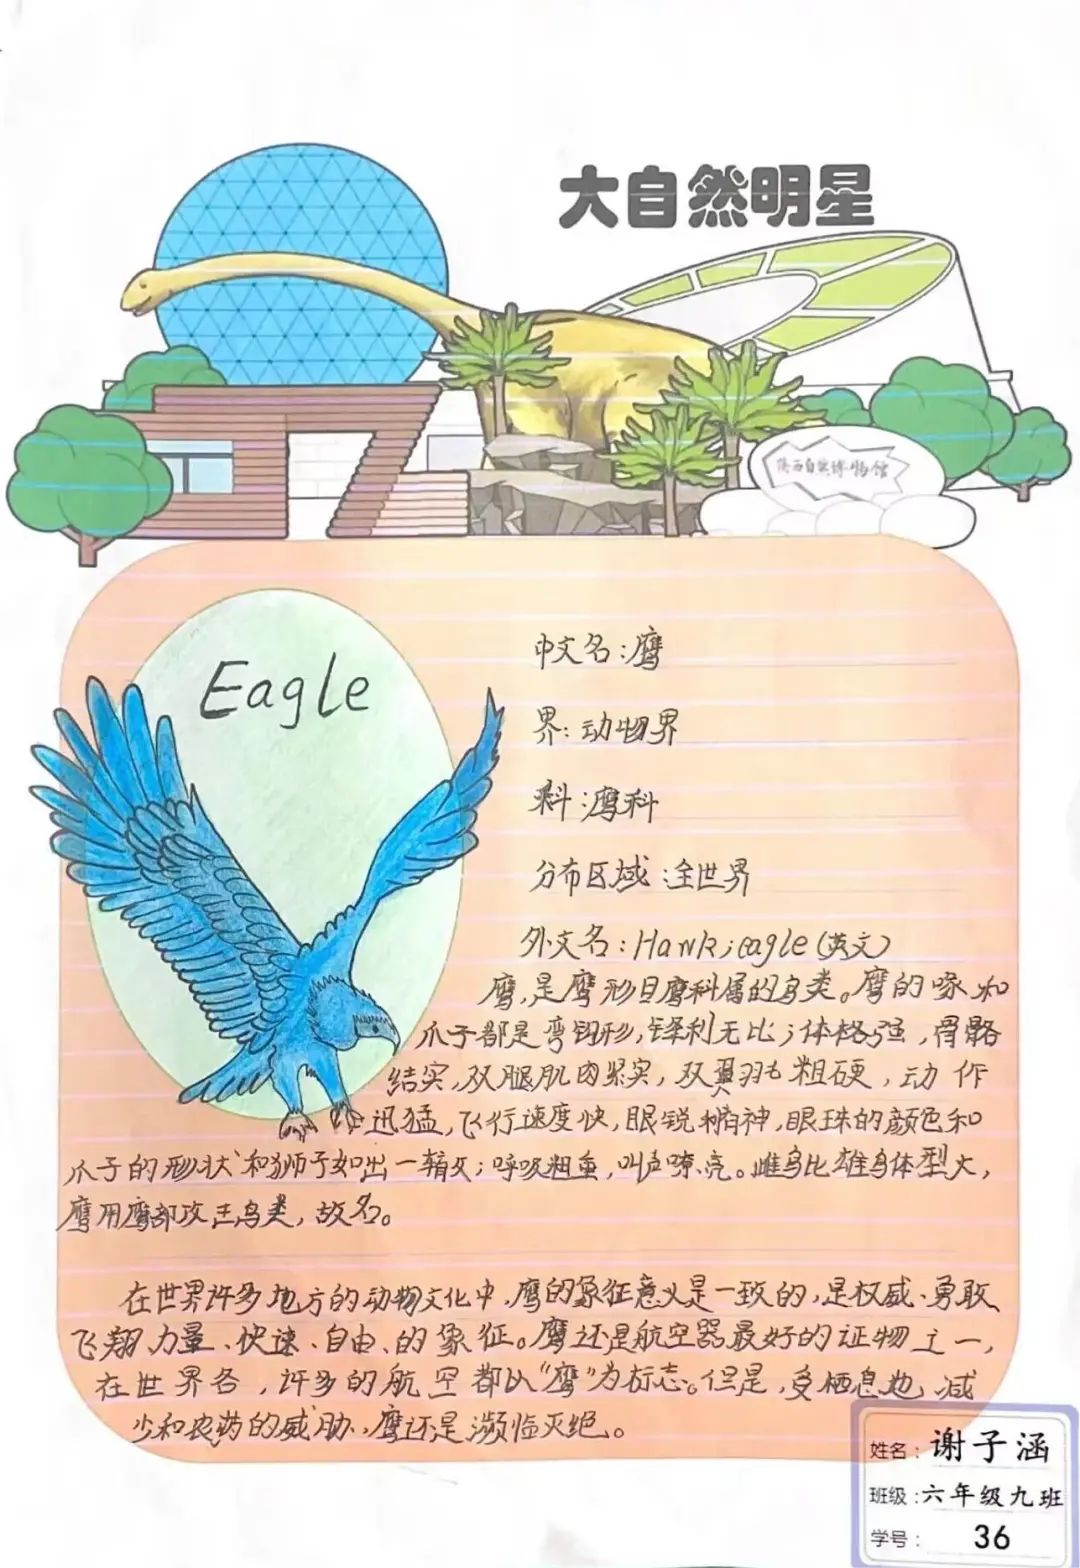 大自然明星
陕西自然博物馆
Eagle
中文名:鹰
界:动物界
科:鹰科
分布区域:全世界
外文名:Hawk;eagle(英文)
鹰,是鹰形目鹰科属的鸟类。鹰的喙和
爪子都是弯钩形,锋利无比;体格强,骨骼
结实,双腿肌肉紧实,双翼羽毛粗硬,动作
迅猛,飞行速度快,眼锐精神,眼珠的颜色和
爪子的形状和狮子如出一辙;呼吸粗重,叫声嘹亮。雌鸟比雄鸟体型大,
鹰用鹰部攻击鸟类,故名。
在世界许多地方的动物文化中,鹰的象征意义是一致的,是权威、勇敢、
飞翔力量、快速、自由、的象征。鹰还是航空器最好的证物之一,
在世界各,许多的航空都以“鹰”为标志。但是,受栖息地减
少和农药的威胁,鹰还是濒临灭绝。
姓名:谢子涵
班级:六年级九班
学号:36